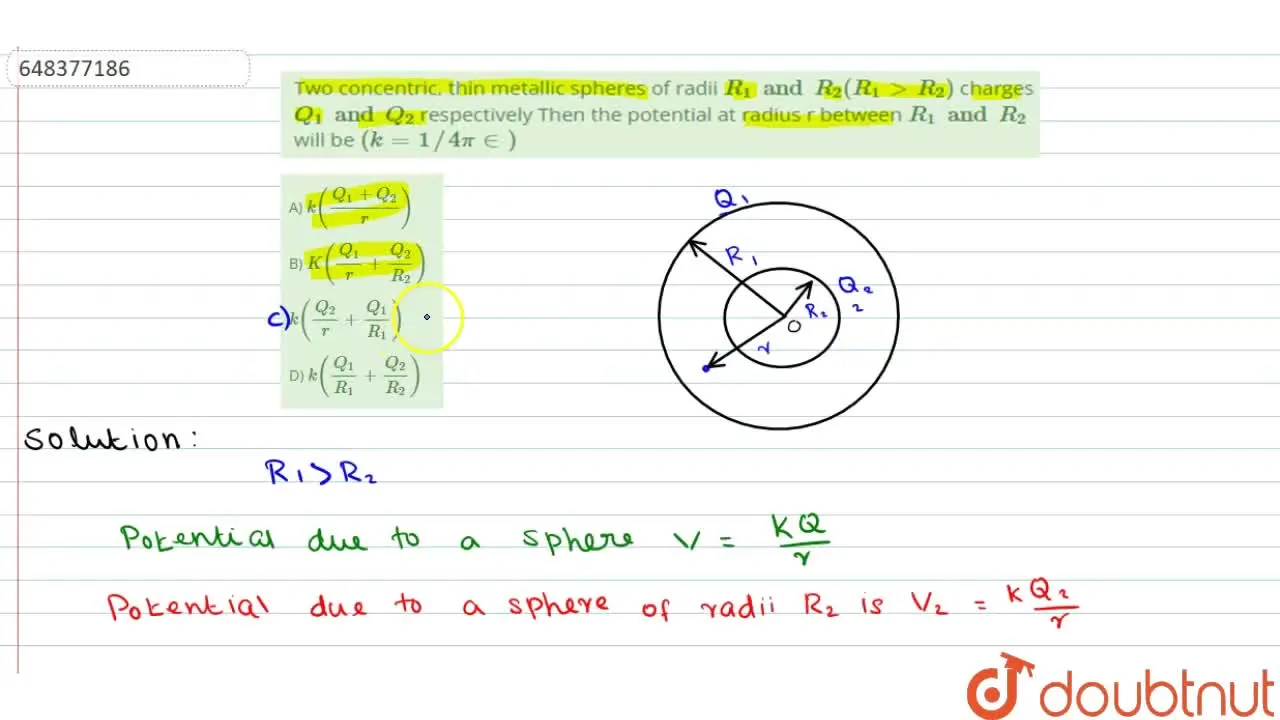 648377186
Two concentric, thin metallic spheres of radii R₁ and R₂(R₁ > R₂) charges
Q₁ and Q₂ respectively Then the potential at radius r between R₁ and R₂
will be (k = 1/4π ∈)
A) k((Q₁ + Q₂)/r)
B) K(Q₁/r + Q₂/R₂)
C) k(Q₂/r + Q₁/R₁)
D) k(Q₁/R₁ + Q₂/R₂)
Q₁
R₁
Q₂
2
R₂
O
r
Solution:
R₁ > R₂
Potential due to a sphere V = KQ/r
Potential due to a sphere of radii R₂ is V₂ = KQ₂/r
doubtnut